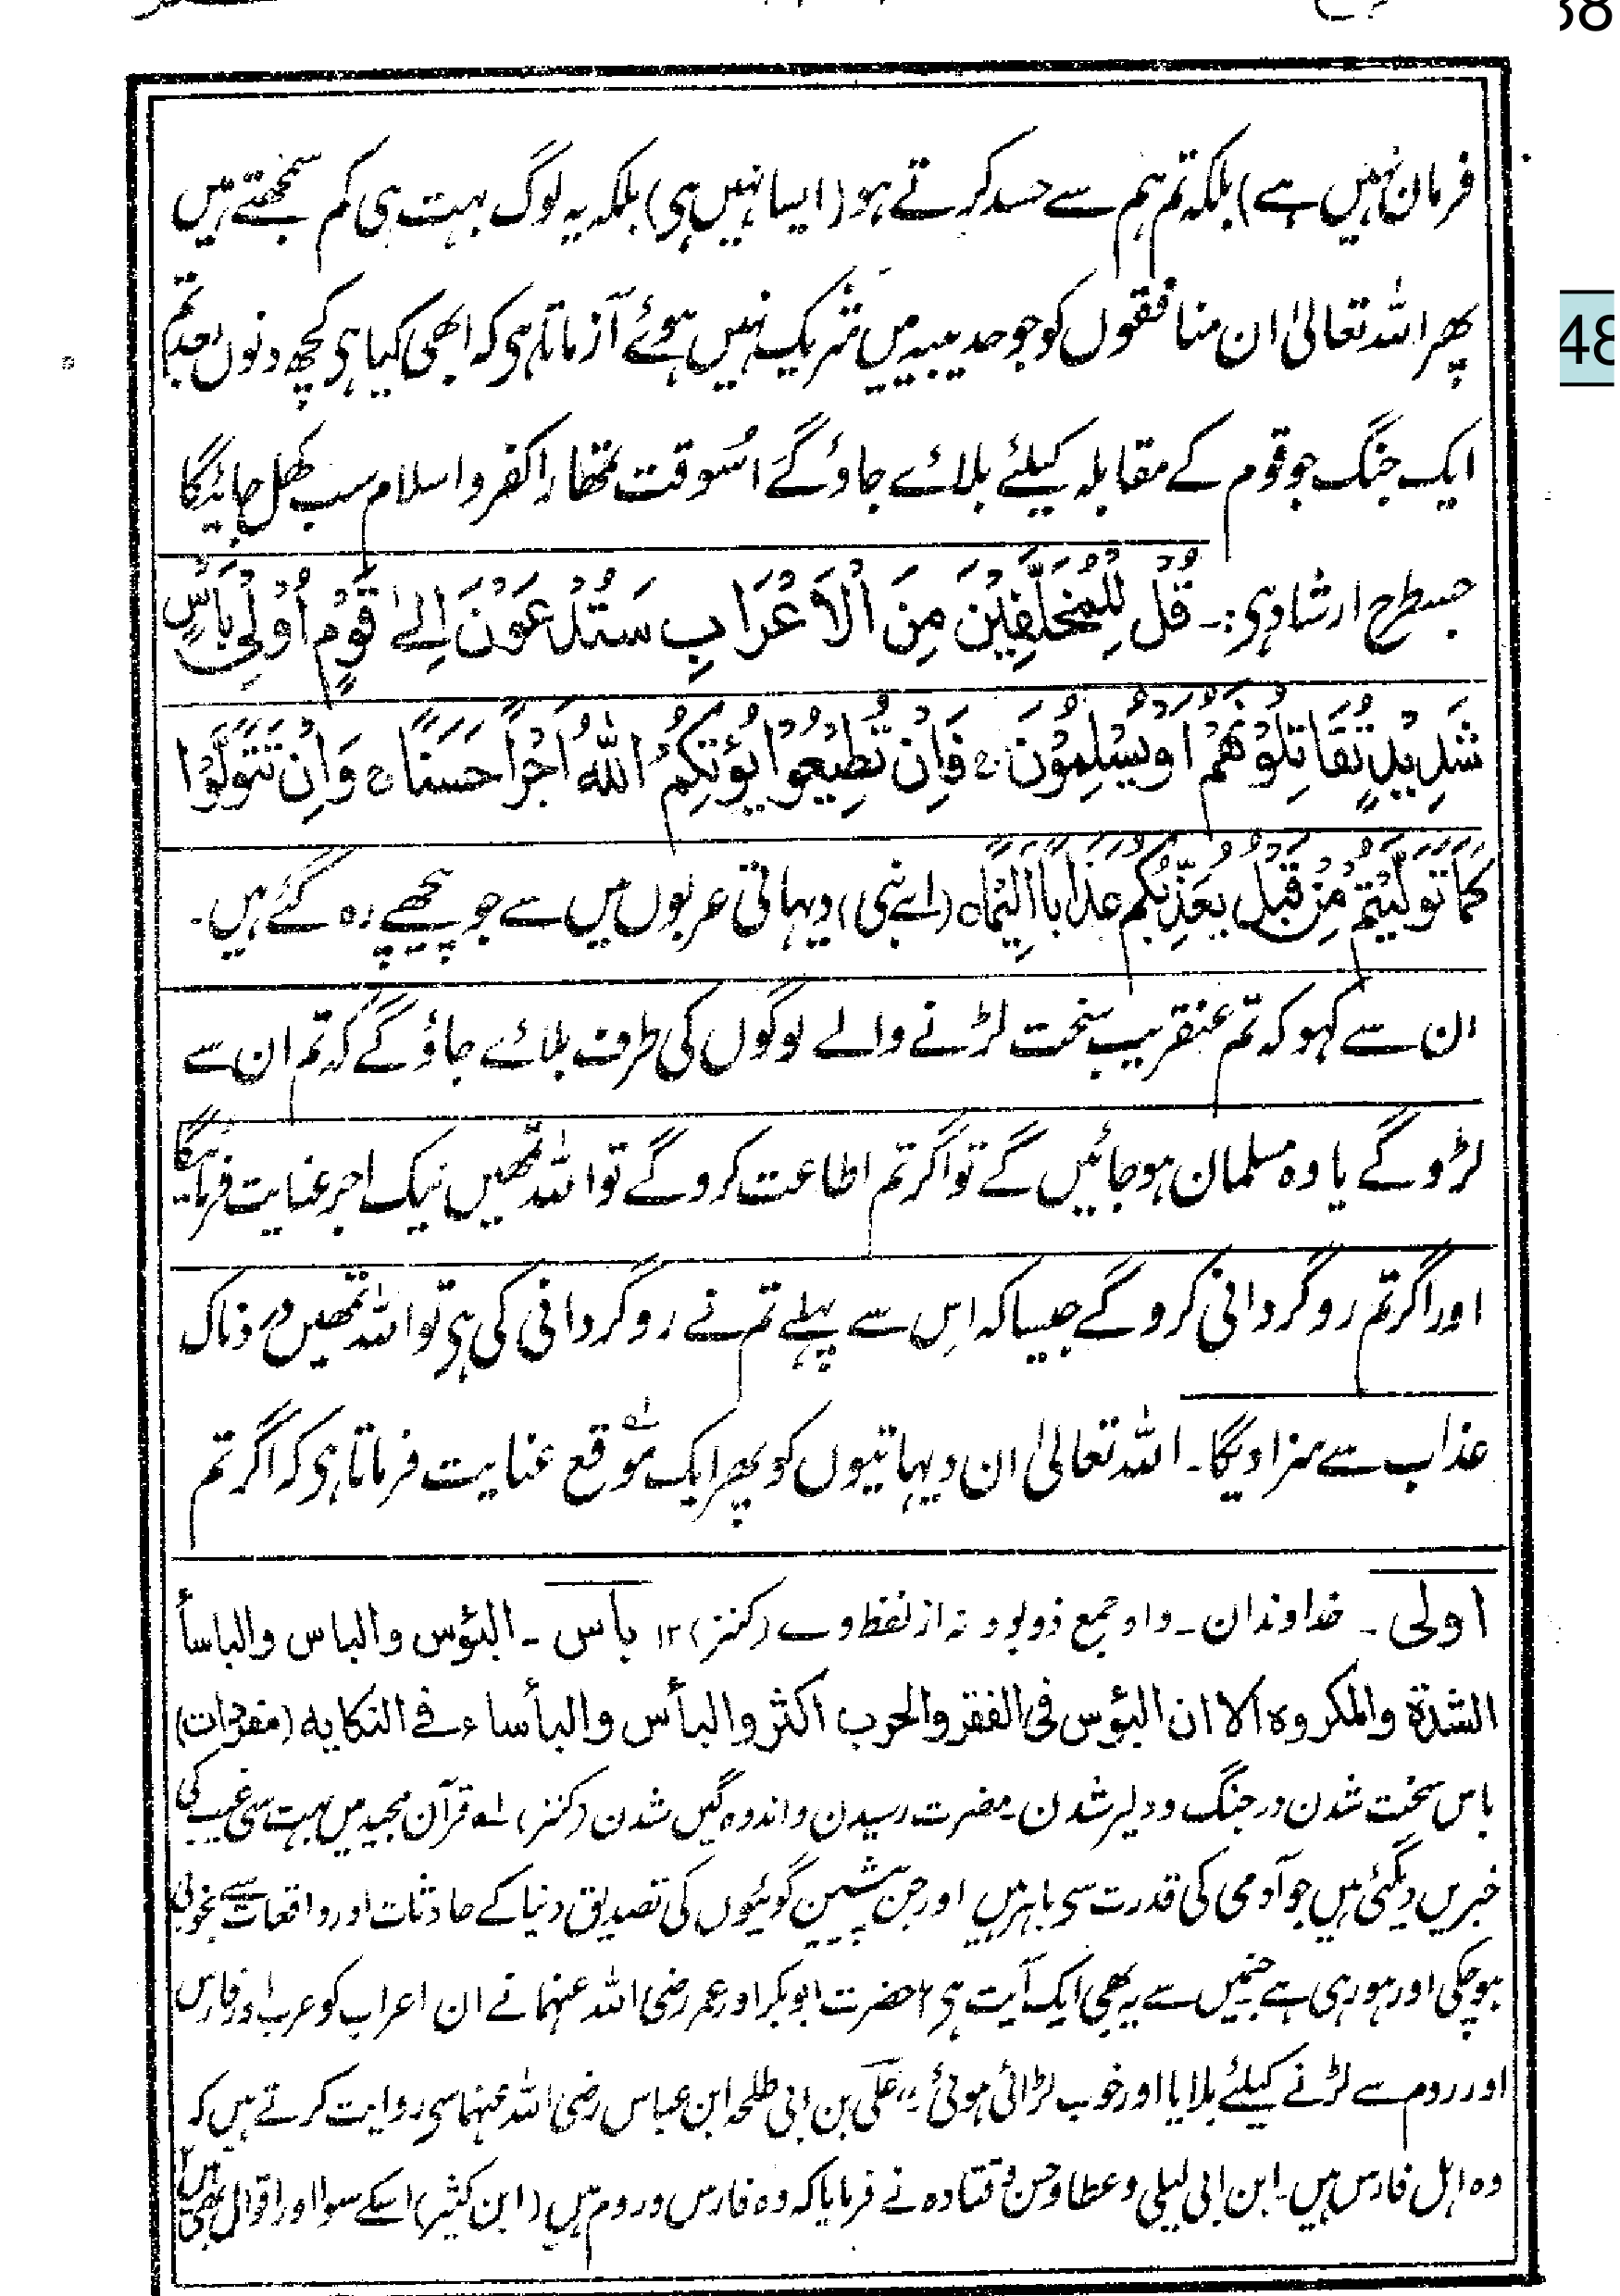 38
48
فرمان نہیں ہے) بلکہ تم ہم سے حسد کرتے ہو (ایسا نہیں ہی) بلکہ یہ لوگ بہت ہی کم سمجھتے ہیں
پھر اللہ تعالیٰ ان منافقوں کو جو حدیبیہ میں شریک نہیں ہوئے آزماتا ہی کہ ابھی کیا ہی کچھ دنوں بعد تم
ایک جنگ جو قوم کے مقابلہ کیلئے بلائے جاؤگے اُسوقت تمھارا کفر و اسلام سب کھل جائیگا
جسطرح ارشاد ہی:۔ قُلْ لِلْمُخَلَّفِيْنَ مِنَ الْاَعْرَابِ سَتُدْعَوْنَ اِلٰى قَوْمٍ اُوْلِيْ بَاْسٍ
شَدِيْدٍ تُقَاتِلُوْنَهُمْ اَوْ يُسْلِمُوْنَ ۚ فَاِنْ تُطِيْعُوْا يُؤْتِكُمُ اللهُ اَجْرًا حَسَنًا ۚ وَاِنْ تَتَوَلَّوْا
كَمَا تَوَلَّيْتُمْ مِّنْ قَبْلُ يُعَذِّبْكُمْ عَذَابًا اَلِيْمًا ہ (اے نبی) دیہاتی عربوں میں سے جو پیچھے رہ گئے ہیں۔
ان سے کہو کہ تم عنقریب سخت لڑنے والے لوگوں کی طرف بلائے جاؤگے کہ تم ان سے
لڑوگے یا وہ مسلمان ہو جائیں گے تو اگر تم اطاعت کروگے تو اللہ تمھیں نیک اجر عنایت فرمائیگا
اور اگر تم روگردانی کروگے جیسا کہ اِس سے پہلے تم نے روگردانی کی ہی تو اللہ تمھیں دردناک
عذاب سے سزا دیگا۔ اللہ تعالیٰ ان دیہاتیوں کو پھر ایک موقع عنایت فرماتا ہی کہ اگر تم
اولی۔ خداوندان۔ واو جمع ذو بود نہ از لفظ وے (کنز) ۱۲ باس۔ البؤس والباس والباسأ
الشدة والمكروه الا ان البؤس فى الفقر والحرب اكثر والبأس والبأساء فے النكايه (مفردات)
باس سخت شدن در جنگ و دلیر شدن۔ مضرت رسیدن و اندوہ گیں شدن (کنز) لہ قرآن مجید میں بہت سی غیب کی
خبریں دیگئی ہیں جو آدمی کی قدرت سی باہر ہیں اور جن پیشین گوئیوں کی تصدیق دنیا کے حادثات اور واقعات سے بخوبی
ہوچکی اور ہو رہی ہے جنمیں سے یہ بھی ایک آیت ہی حضرت ابوبکر اور عمر رضی اللہ عنہما نے ان اعراب کو عرب اور فارس
اور روم سے لڑنے کیلئے بلایا اور خوب لڑائی ہوئی۔ علی بن ابی طلحہ ابن عباس رضی اللہ عنہما سی روایت کرتے ہیں کہ
وہ اہل فارس ہیں۔ ابن ابی لیلی و عطا و حسن و قتادہ نے فرمایا کہ وہ فارس و روم ہیں (ابن کثیر) اسکے سوا اور اقوال بھی ہیں